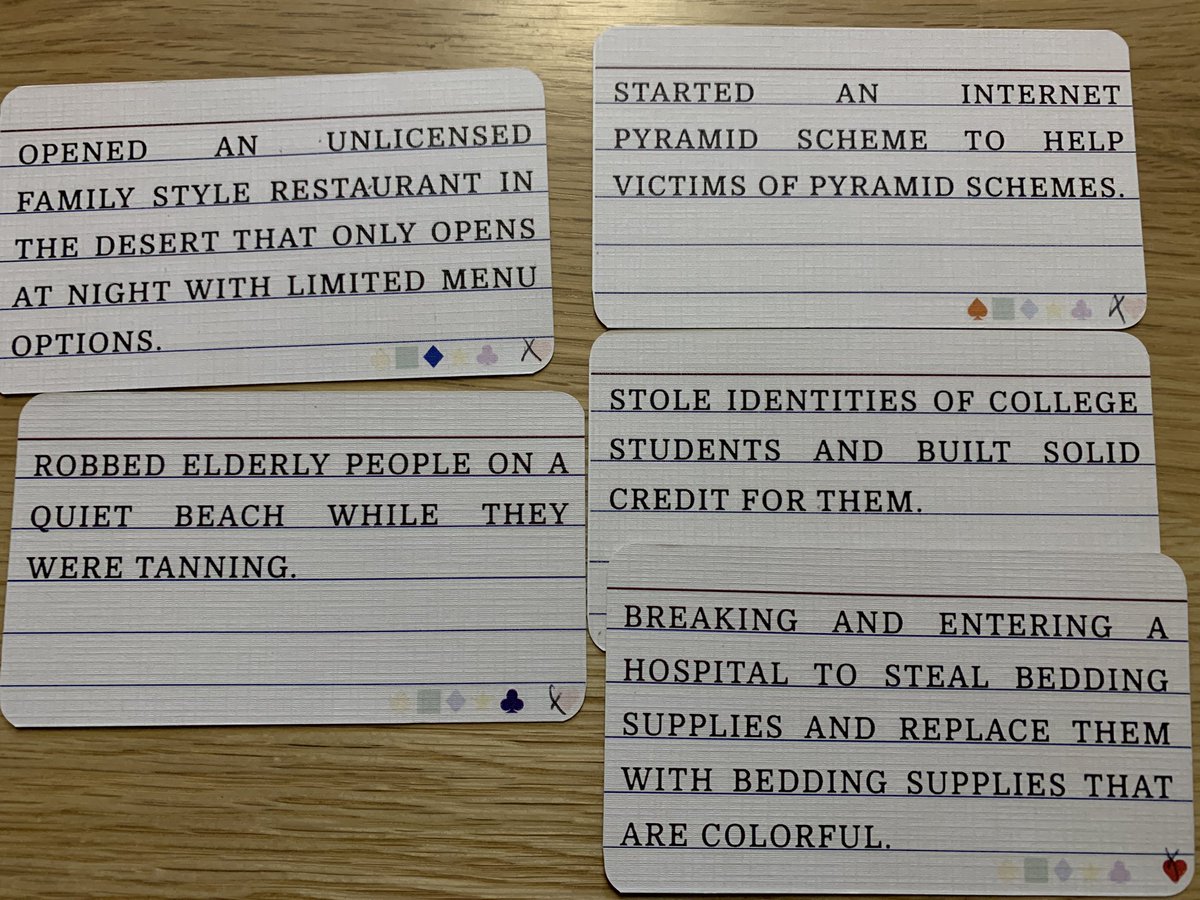 OPENED AN UNLICENSED
FAMILY STYLE RESTAURANT IN
THE DESERT THAT ONLY OPENS
AT NIGHT WITH LIMITED MENU
OPTIONS.
X
ROBBED ELDERLY PEOPLE ON A
QUIET BEACH WHILE THEY
WERE TANNING.
X
STARTED AN INTERNET
PYRAMID SCHEME TO HELP
VICTIMS OF PYRAMID SCHEMES.
X
STOLE IDENTITIES OF COLLEGE
STUDENTS AND BUILT SOLID
CREDIT FOR THEM.
BREAKING AND ENTERING A
HOSPITAL TO STEAL BEDDING
SUPPLIES AND REPLACE THEM
WITH BEDDING SUPPLIES THAT
ARE COLORFUL.
X